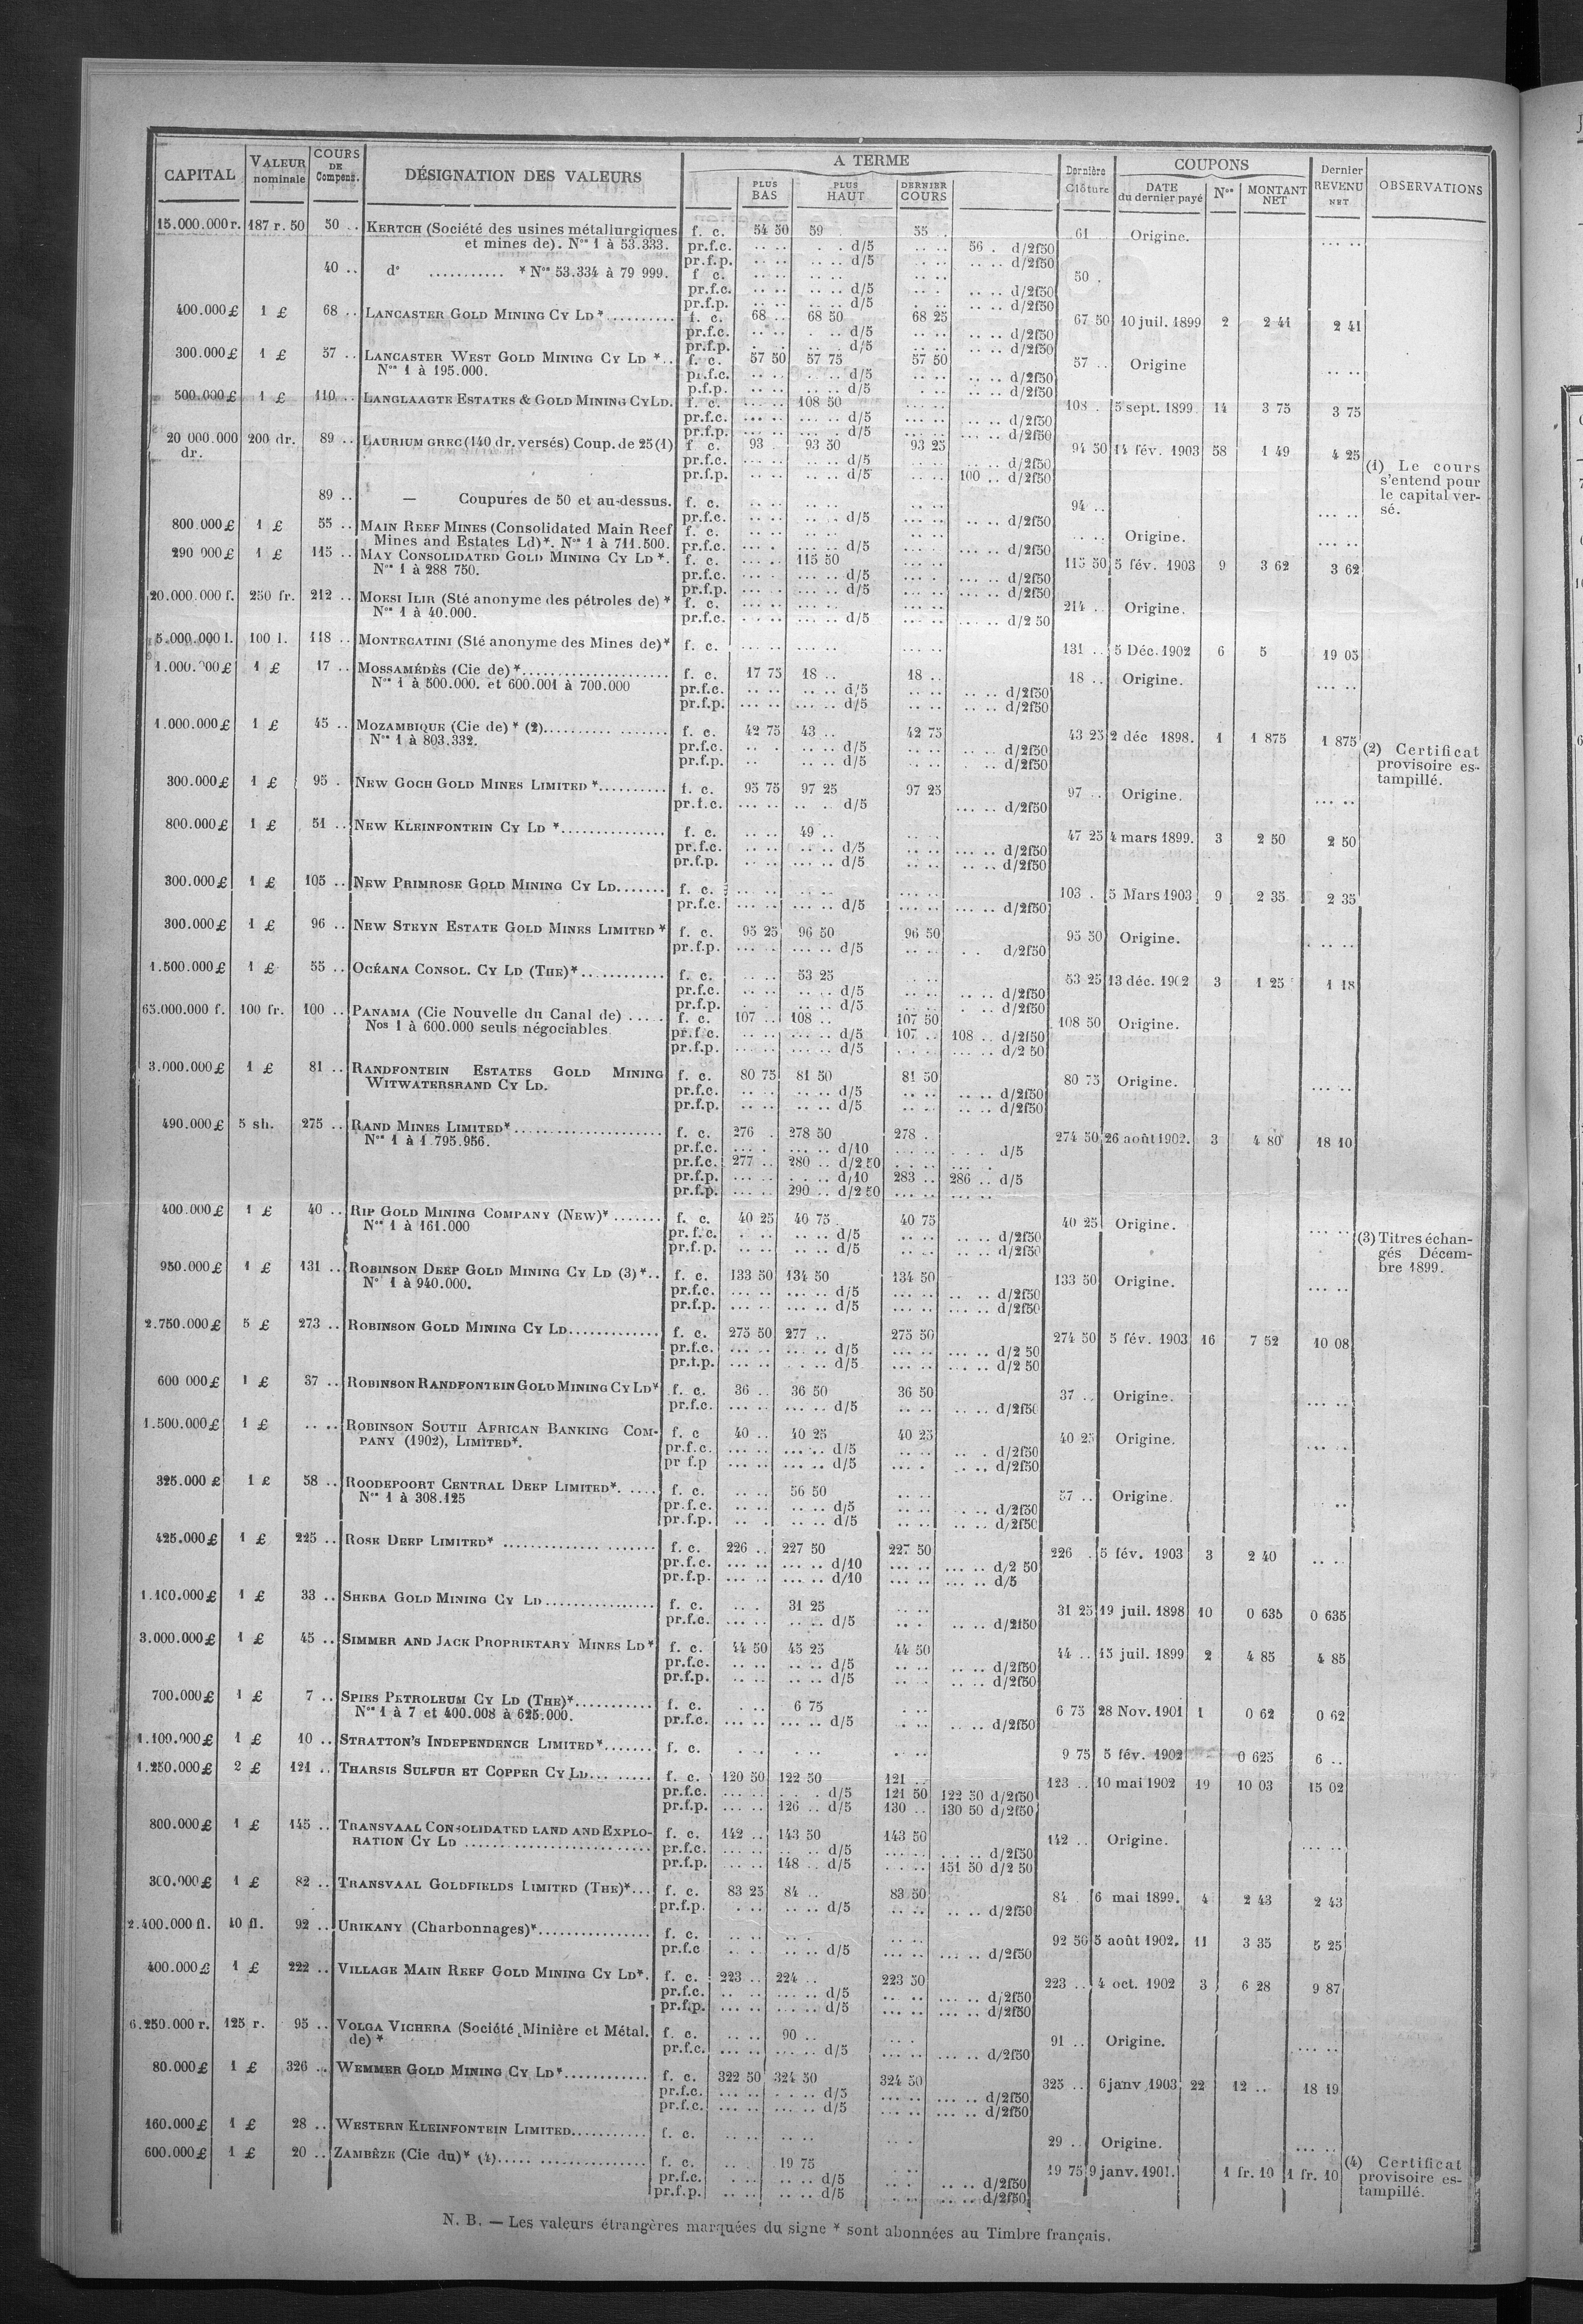 CAPITAL VALEUR nominale COURS DE Compens. DÉSIGNATION DES VALEURS A TERME Dernière Clôture COUPONS Dernier REVENU NET OBSERVATIONS
PLUS BAS PLUS HAUT DERNIER COURS DATE du dernier payé Nos MONTANT NET
15.000.000 r. 187 r. 50 50 .. KERTCH (Société des usines métallurgiques f. c. 54 50 59 . 55 . 61 Origine. ... ..
et mines de). Nos 1 à 53.333. pr.f.c. .. .. . . d/5 .. .. 56 . d/2f50
pr.f.p. .. .. .. .. d/5 .. .. .. .. d/2f50
40 .. do ........... * Nos 53.334 à 79 999. f c. .. .. .. .. .. .. 50 .
pr.f.c. .. .. .. .. d/5 .. .. .. .. d/2f50
pr.f.p. .. .. .. .. d/5 . .. .. .. d/2f50
400.000 £ 1 £ 68 .. LANCASTER GOLD MINING CY LD *.......... f. c. 68 .. 68 50 68 25 67 50 10 juil. 1899 2 2 41 2 41
pr.f.c. .. .. . .. d/5 .. .. .. .. d/2f50
pr.f.p. . . .. d/5 .. .. .. .. d/2f50
300.000 £ 1 £ 57 .. LANCASTER WEST GOLD MINING CY LD *.. f. c. 57 50 57 75 57 50 57 .. Origine .. ..
Nos 1 à 195.000. pr.f.c. .. .. .. .. d/5 .. .. .. .. d/2f50
p.f.p. .. .. .. .. d/5 .. .. .. .. d/2f50
500.000 £ 1 £ 110 .. LANGLAAGTE ESTATES & GOLD MINING CY LD. f. c. ... .. 108 50 ... .. 108 . 5 sept. 1899. 14 3 75 3 75
pr.f.c. ... .. ... .. d/5 ... .. ... .. d/2f50
pr.f.p. ... .. ... . d/5 ... .. ... .. d/2f50
20 000.000 dr. 200 dr. 89 .. LAURIUM GREC (140 dr. versés) Coup. de 25 (1) f c. 93 . 93 50 93 25 94 50 14 fév. 1903 58 1 49 4 25
pr.f.c. ... .. .. .. d/5 .. .. .. .. d/2f50
pr.f.p. ... .. .. .. d/5 ... .. 100 .. d/2f50
(1) Le cours
s'entend pour
le capital ver-
sé.
89 .. — Coupures de 50 et au-dessus. f. c. .. .. .. .. .. .. 94 .. ... ..
pr.f.c. .. .. .. .. d/5 ... .. .. .. d/2f50
800.000 £ 1 £ 55 .. MAIN REEF MINES (Consolidated Main Reef f. c. .. .. .. .. .. .. .. .. Origine. ... ..
Mines and Estates Ld)*. Nos 1 à 711.500. pr.f.c. ... . ... .. d/5 ... .. ... .. d/2f50
290 000 £ 1 £ 115 .. MAY CONSOLIDATED GOLD MINING CY LD *. f. c. ... .. 115 50 ... .. 115 50 5 fév. 1903 9 3 62 3 62
Nos 1 à 288 750. pr.f.c. ... . ... .. d/5 ... .. ... .. d/2f50
pr.f.p. ... .. ... .. d/5 ... .. ... .. d/2f50
20.000.000 f. 250 fr. 212 .. MORSI ILIR (Sté anonyme des pétroles de) * f. c. ... .. ... .. ... .. 214 .. Origine.
Nos 1 à 40.000. pr.f.c. ... .. ... .. d/5 ... .. ... .. d/2 50
5.000.000 l. 100 l. 118 .. MONTECATINI (Sté anonyme des Mines de)* f. c. ... .. ... .. ... .. 131 .. 5 Déc. 1902 6 5 19 05
1.000.000 £ 1 £ 17 .. MOSSAMÉDÈS (Cie de) *..................... f. c. 17 75 18 .. 18 .. 18 .. Origine. ... ..
Nos 1 à 500.000. et 600.001 à 700.000 pr.f.c. .. .. .. .. d/5 .. .. .. .. d/2f50
pr.f.p. ... .. ... .. d/5 .. .. .. .. d/2f50
1.000.000 £ 1 £ 45 .. MOZAMBIQUE (Cie de) * (2).......... ....... f. c. 42 75 43 .. 42 75 43 25 2 déc 1898. 1 1 875 1 875
Nos 1 à 803.332. pr.f.c. .. . .. .. d/5 .. .. .. .. d/2f50
pr.f.p. .. .. .. d/5 .. .. . .. d/2f50
(2) Certificat
provisoire es-
tampillé.
300.000 £ 1 £ 95 . NEW GOCH GOLD MINES LIMITED *.......... f. c. 95 75 97 25 97 25 97 .. Origine. ... ..
pr.f.c. ... .. .. . d/5 ... .. d/2f50
800.000 £ 1 £ 51 .. NEW KLEINFONTEIN CY LD *............... f. c. .. .. 49 .. .. .. 47 25 4 mars 1899. 3 2 50 2 50
pr.f.c. .. .. .. .. d/5 .. .. ... .. d/2f50
pr.f.p. .. .. ... .. d/5 .. .. ... .. d/2f50
300.000 £ 1 £ 105 .. NEW PRIMROSE GOLD MINING CY LD....... f. c. ... .. .. .. ... .. 103 . 5 Mars 1903 9 2 35 2 35
pr.f.c. ... .. ... .. d/5 ... .. ... .. d/2f50
300.000 £ 1 £ 96 .. NEW STEYN ESTATE GOLD MINES LIMITED * f. c. 95 25 96 50 96 50 95 50 Origine. . .. ..
pr.f.p. ... .. ... .. d/5 .. .. . . d/2f50
1.500.000 £ 1 £ 55 .. OCÉANA CONSOL. CY LD (THE)*............ f. c. .. .. 53 25 .. .. 53 25 13 déc. 1902 3 1 25 1 18
pr.f.c. .. .. .. .. d/5 .. .. .. .. d/2f50
pr.f.p. .. . ... .. d/5 .. .. . .. d/2f50
65.000.000 f. 100 fr. 100 .. PANAMA (Cie Nouvelle du Canal de) ..... f. c. 107 .. 108 .. 107 50 108 50 Origine.
Nos 1 à 600.000 seuls négociables. pr.f.c. .. .. ... .. d/5 107 .. 108 .. d/2f50
pr.f.p. ... .. ... .. d/5 . .. . ... .. d/2 50
3.000.000 £ 1 £ 81 .. RANDFONTEIN ESTATES GOLD MINING f. c. 80 75 81 50 81 50 80 75 Origine. ... ..
WITWATERSRAND CY LD. pr.f.c. .. .. .. .. d/5 .. .. .. .. d/2f50
pr.f.p. .. .. .. .. d/5 .. .. .. .. d/2f50
490.000 £ 5 sh. 275 .. RAND MINES LIMITED*..................... f. c. 276 . 278 50 278 . 274 50 26 août 1902. 3 4 80 18 10
Nos 1 à 1 795.956. pr.f.c. ... . ... .. d/10 ... .. . .. d/5
pr.f.c. 277 .. 280 .. d/2 50 . .. .. ... .
pr.f.p. ... .. . . .. d/10 283 .. 286 .. d/5
pr.f.p. ... .. 290 .. d/2 50 ... .. ... ..
400.000 £ 1 £ 40 .. RIP GOLD MINING COMPANY (NEW)*....... f. c. 40 25 40 75 40 75 40 25 Origine. ... ..
Nos 1 à 161.000 pr.f.c. . .. .. .. d/5 .. .. .. .. d/2f50
pr.f.p. .. .. .. .. d/5 .. .. .. .. d/2f50
(3) Titres échan-
gés Décem-
bre 1899.
950.000 £ 1 £ 131 .. ROBINSON DEEP GOLD MINING CY LD (3)*.. f. c. 133 50 134 50 134 50 133 50 Origine. ... ..
No 1 à 940.000. pr.f.c. ... .. ... .. d/5 ... .. .. .. d/2f50
pr.f.p. ... .. ... .. d/5 ... .. ... .. d/2f50
2.750.000 £ 5 £ 273 .. ROBINSON GOLD MINING CY LD............. f. c. 275 50 277 .. 275 50 274 50 5 fév. 1903 16 7 52 10 08
pr.f.c. ... .. ... .. d/5 ... .. ... .. d/2 50
pr.f.p. ... .. . .. d/5 ... .. ... .. d/2 50
600 000 £ 1 £ 37 .. ROBINSON RANDFONTEIN GOLD MINING CY LD* f. c. 36 .. 36 50 36 50 37 .. Origine. ... ..
pr.f.c. ... .. ... .. d/5 .. .. .. .. d/2f50
1.500.000 £ 1 £ .. .. ROBINSON SOUTH AFRICAN BANKING COM- f. c 40 .. 40 25 40 25 40 25 Origine. ... ..
PANY (1902), LIMITED*. pr.f.c. ... .. ... .. d/5 .. .. .. . d/2f50
pr f.p ... .. ... .. d/5 ... . . .. d/2f50
325.000 £ 1 £ 58 .. ROODEPOORT CENTRAL DEEP LIMITED*..... f. c. .. .. 56 50 .. .. 57 .. Origine. ..
Nos 1 à 308.125 pr.f.c. .. .. .. .. d/5 .. .. . .. d/2f50
pr.f.p. .. . .. .. d/5 .. .. .. .. d/2f50
425.000 £ 1 £ 225 .. ROSE DEEP LIMITED* ............. ....... f. c. 226 .. 227 50 227 50 226 . 5 fév. 1903 3 2 40 .. ..
pr.f.c. ... .. ... .. d/10 ... .. ... .. d/2 50
pr.f.p. ... .. ... .. d/10 ... .. ... .. d/5
1.100.000 £ 1 £ 33 .. SHEBA GOLD MINING CY LD................ f. c. .. . 31 25 .. .. 31 25 19 juil. 1898 10 0 635 0 635
pr.f.c. ... .. .. .. d/5 .. . .. .. d/2f50
3.000.000 £ 1 £ 45 .. SIMMER AND JACK PROPRIETARY MINES LD* f. c. 44 50 45 25 44 50 44 .. 15 juil. 1899 2 4 85 4 85
pr.f.c. .. .. .. .. d/5 .. .. .. .. d/2f50
pr.f.p. .. .. .. .. d/5 .. .. .. .. d/2f50
700.000 £ 1 £ 7 .. SPIES PETROLEUM CY LD (THE)*........... f. c. .. . 6 75 . .. 6 75 28 Nov. 1901 1 0 62 0 62
Nos 1 à 7 et 400.008 à 625.000. pr.f.c. ... .. ... .. d/5 . .. .. .. d/2f50
1.100.000 £ 1 £ 10 .. STRATTON'S INDEPENDENCE LIMITED*....... f. c. . . . .. .. .. 9 75 5 fév. 1902 0 625 6 ..
1.250.000 £ 2 £ 121 .. THARSIS SULFUR ET COPPER CY LD... ...... f. c. 120 50 122 50 121 .. 123 .. 10 mai 1902 19 10 03 15 02
pr.f.c. ... .. . . d/5 121 50 122 50 d/2f50
pr.f.p. ... .. 126 .. d/5 130 .. 130 50 d/2f50
800.000 £ 1 £ 145 .. TRANSVAAL CONSOLIDATED LAND AND EXPLO- f. c. 142 .. 143 50 143 50 142 .. Origine. ... ..
RATION CY LD .......................... pr.f.c. ... .. .. .. d/5 ... .. . .. d/2f50
pr.f.p. ... .. 148 .. d/5 ... .. 151 50 d/2 50
300.000 £ 1 £ 82 .. TRANSVAAL GOLDFIELDS LIMITED (THE)*... f. c. 83 25 84 .. 83 50 84 . 6 mai 1899. 4 2 43 2 43
pr.f.p. . .. .. .. d/5 .. .. .. .. d/2f50
2.400.000 fl. 10 fl. 92 .. URIKANY (Charbonnages)*................ f. c. .. .. .. . .. .. 92 50 5 août 1902. 11 3 35 5 25
pr.f.c .. . .. .. d/5 ... .. ... .. d/2f50
400.000 £ 1 £ 222 .. VILLAGE MAIN REEF GOLD MINING CY LD*. f. c. 223 .. 224 .. 223 50 223 .. 4 oct. 1902 3 6 28 9 87
pr.f.c. .. .. ... .. d/5 .. .. ... .. d/2f50
pr.f.p. ... .. ... .. d/5 ... .. ... .. d/2f50
6.250.000 r. 125 r. 95 .. VOLGA VICHERA (Société Minière et Métal. f. c. .. .. 90 .. .. . 91 .. Origine. ... ..
de) * pr.f.c. ... .. ... .. d/5 ... .. ... .. d/2f50
80.000 £ 1 £ 326 .. WEMMER GOLD MINING CY LD*............ f. c. 322 50 324 50 324 50 325 .. 6 janv 1903 22 12 .. 18 19
pr.f.c. ... .. . . .. d/5 ... .. ... .. d/2f50
pr.f.c. ... .. ... .. d/5 ... .. ... .. d/2f50
160.000 £ 1 £ 28 .. WESTERN KLEINFONTEIN LIMITED........... f. c. .. .. .. .. .. . 29 .. Origine. ... ..
600.000 £ 1 £ 20 .. ZAMBÈZE (Cie du)* (4)..... ............... f. c. .. . 19 75 .. 19 75 9 janv. 1901. 1 fr. 10 1 fr. 10
pr.f.c. . .. .. .. d/5 .. . .. .. d/2f50
pr.f.p. .. .. .. .. d/5 . .. .. .. d/2f50
(4) Certificat
provisoire es-
tampillé.
N. B. — Les valeurs étrangères marquées du signe * sont abonnées au Timbre français.